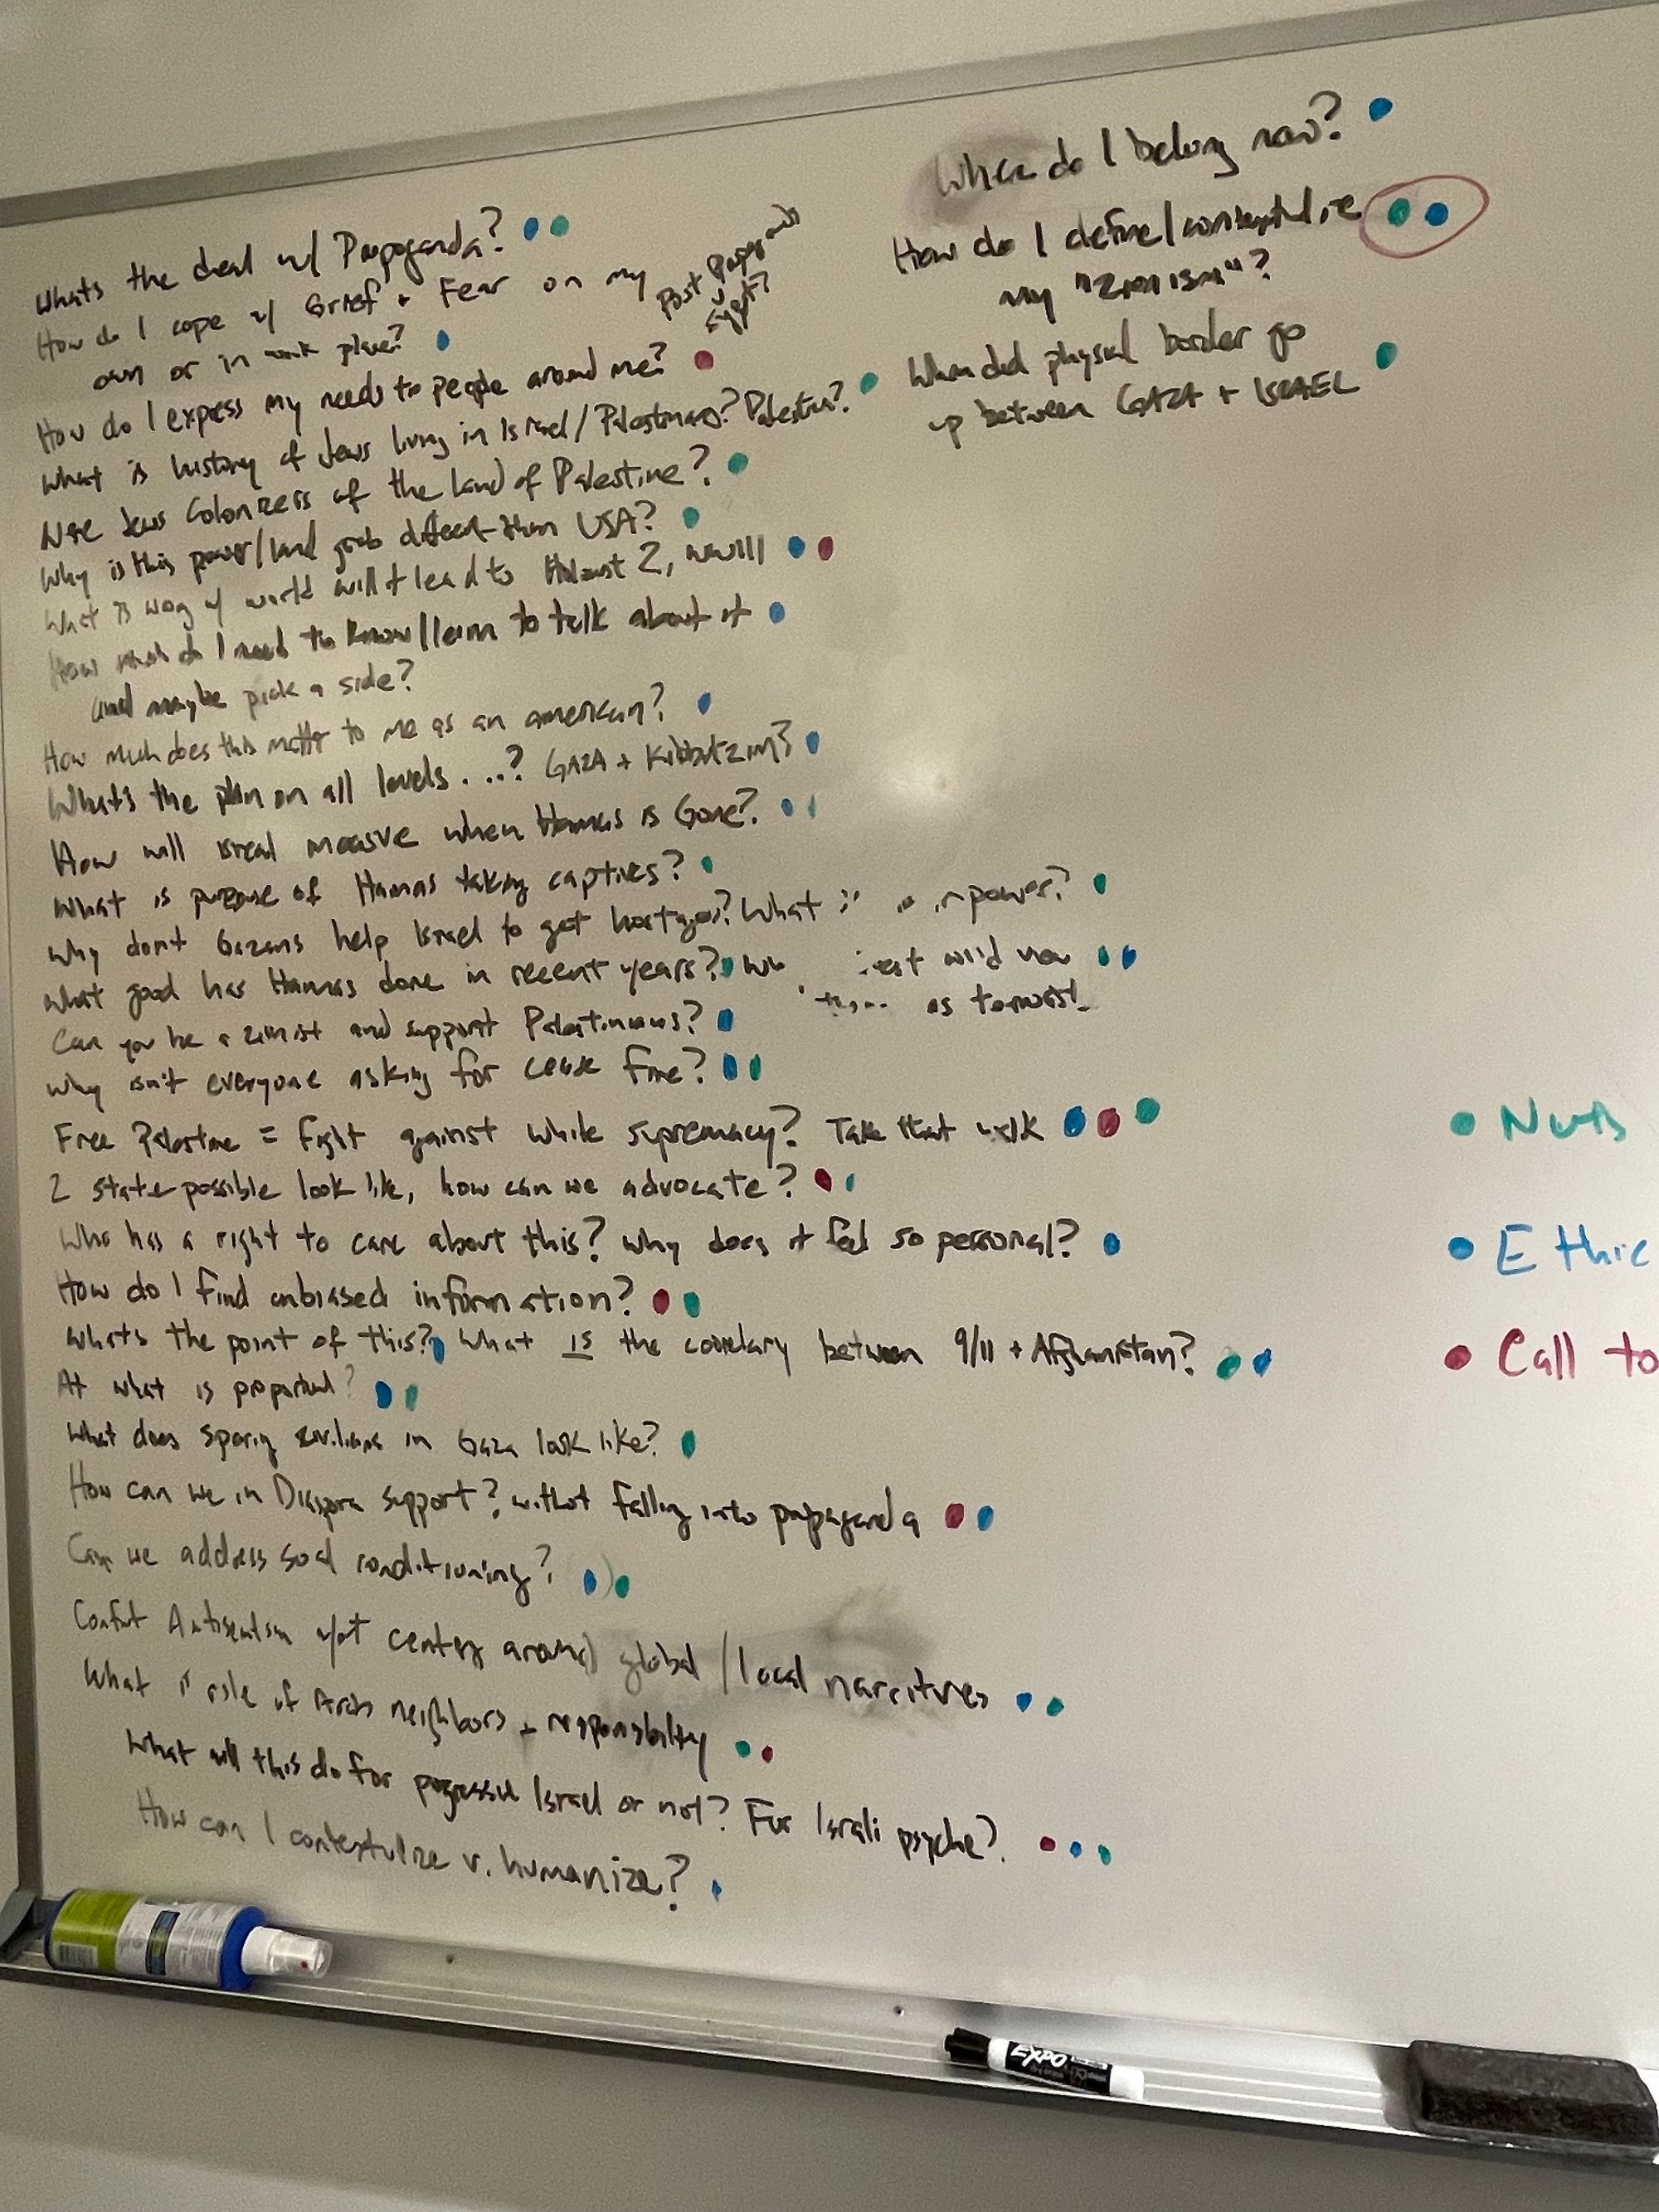 Whats the deal w/ Propoganda?
How do I cope w/ Grief + Fear on my
own or in work place?
Post
How do I express my needs to people around me?
What is history of Jews living in Israel/Palestinians? Palestine?
Jews Colonizers of the land of Palestine?
Why is this power/land grab different than USA?
What is wrong w/ world will it lead to 2,
How much do I need to know/learn to talk about it
and maybe pick a side?
How much does this matter to me as an american?
What's the plan on all levels...? GAZA + Kibbutzim?
How will Isreal measure when Hamas is Gone?
What is purpose of Hamas taking captives?
Why dont Gazans help Israel to get hostages? What power?
What good has Hamas done in recent years?
as terrorist
Can you be a zionist and support Palestinians?
Why isn't everyone asking for cease fire?
Free Palestine = fight against white supremacy? Take that
2 state possible look like, how can we advocate?
Who has a right to care about this? Why does it feel so personal?
How do I find unbiased information?
Whats the point of this? What IS the between 9/11 + Afghanistan?
At what is
What does sparing in Gaza look like?
How can we in Diaspora support? without falling into propaganda
Can we address conditioning?
around global / local narritives
What is role of neighbors + responsibility
What will this do for progressive Israel or not? For psyche?
How can I v. humanize?
Where do I belong now?
How do I define/
my "Zionism"?
When did physical border go
up between GAZA + ISRAEL
Ethic
Call to
EXPO